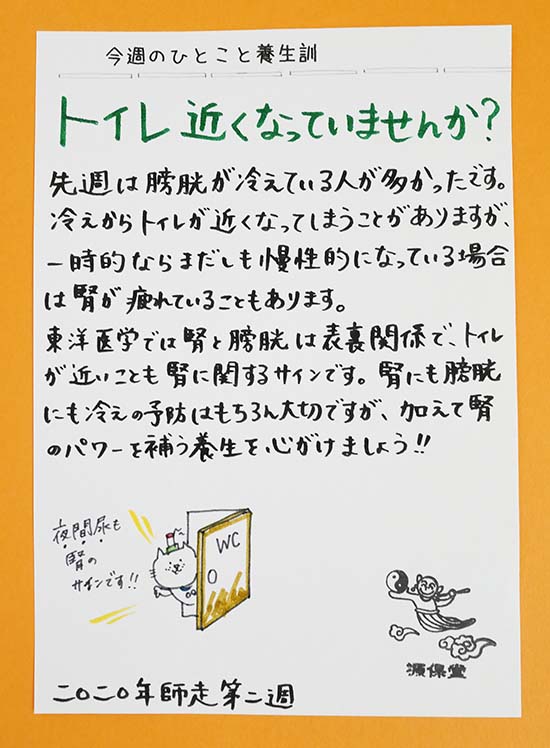 今週のひとこと養生訓
トイレ近くなっていませんか?
先週は膀胱が冷えている人が多かったです。
冷えからトイレが近くなってしまうことがありますが、
一時的ならまだしも慢性的になっている場合
は腎が疲れていることもあります。
東洋医学では腎と膀胱は表裏関係で、トイレ
が近いことも腎に関するサインです。腎にも膀胱
にも冷えの予防はもちろん大切ですが、加えて腎
のパワーを補う養生を心がけましょう!!
夜間尿も
腎の
サインです!!
WC
源保堂
二〇二〇年師走第二週